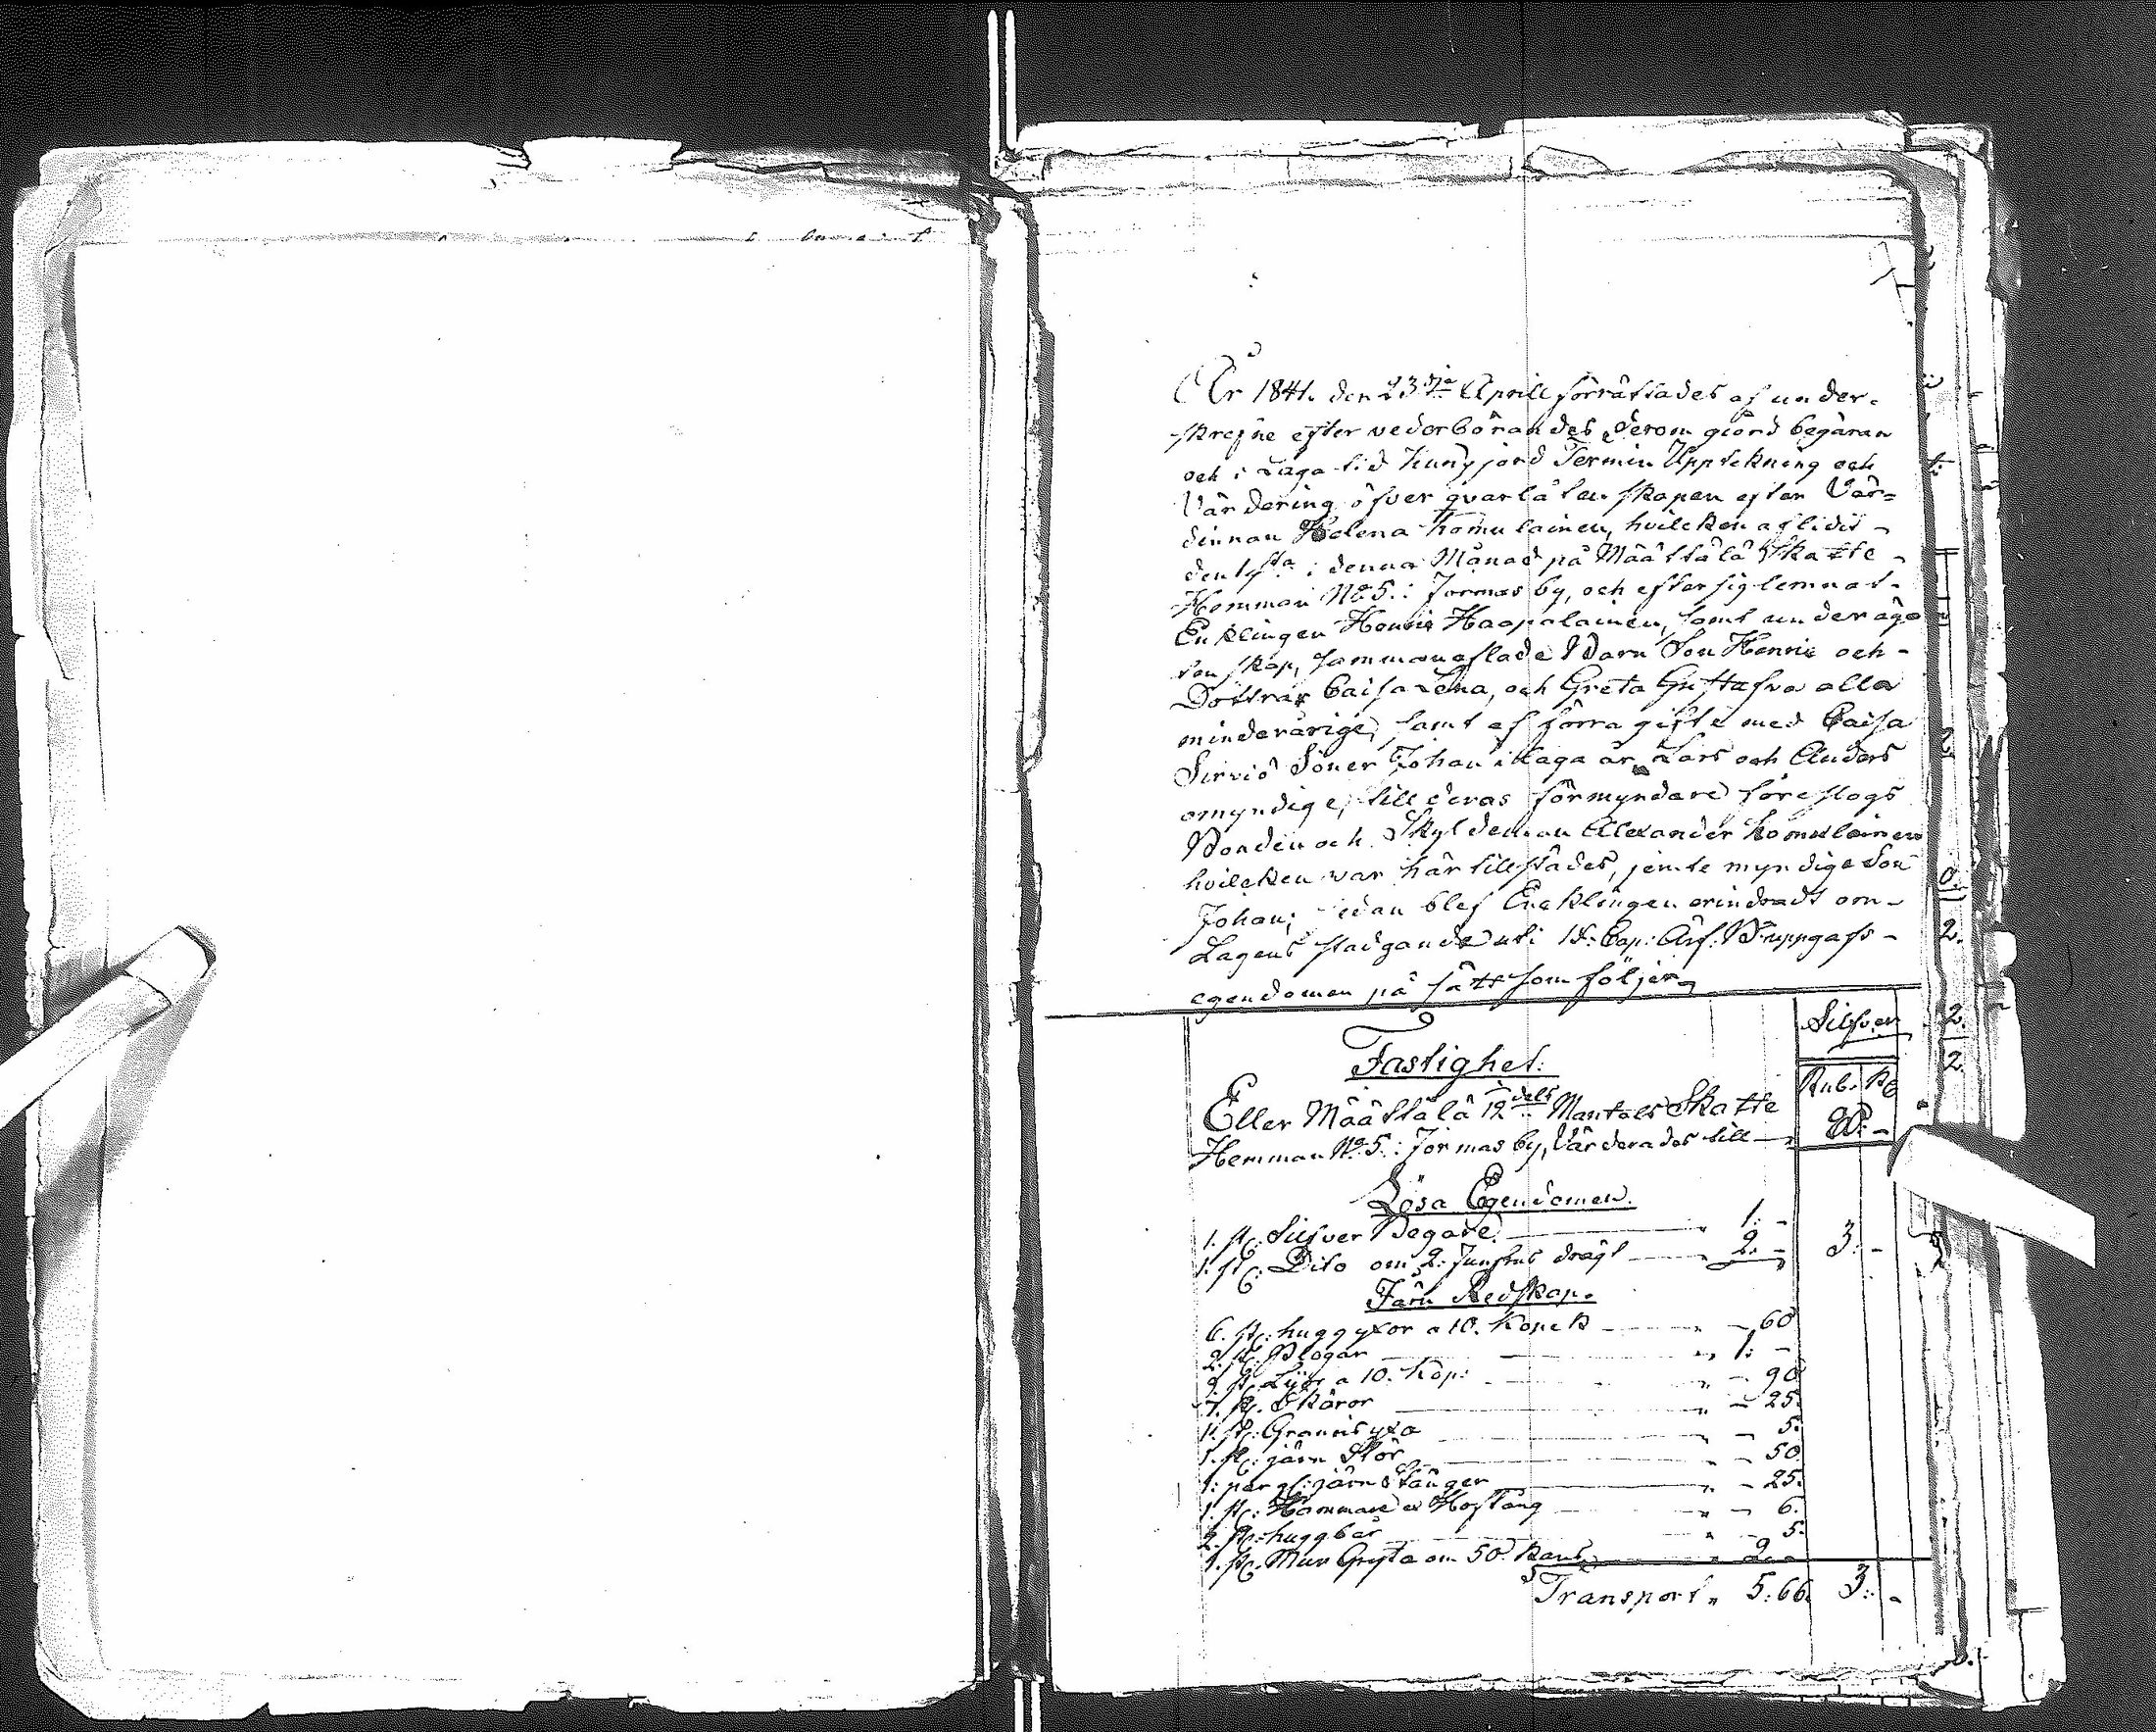 År 1841. den 23dje Aprill förrättades af under-
skrefne efter vederbörandes derom giord begäran
och i Laga tid kungjord Termin Upptekning och
Värdering öfver qvarlåtenskapen efter Vär-
dinnan Helena Komulainen, hvilcken aflidit -
den 1sta i denna Månad på Määttälä Skatte -
Hemman No 5. i Jormas by, och efter sig lemnat -
Enklingen Henric Haapalainen, samt under ägta
sammanaflade Barn Son Henric och -
Döttrar Caisa Lena, och Greta Gustafva alla
minderårige, samt af förra gifte med Caisa
Sirviö Söner Johan i laga år, Lars och Anders
omyndige, till deras förmyndare föreslogs
Bonden och Skyldeman Alexander Komulainen
hvilcken var här tillstädes, jemte myndige Son
Johan; sedan blef Encklingen erindradt om -
Lagens stadgande uti Cap: Arf: B: uppgafs -
egendomen på sätt som följer
Silfver
Fastighet:
Rub. K
Eller Määttälä 12dels Mantals Skatte
Hemman No 5. i Jormas by, Värderades till
Lösa Egendomen.
1. st: Silfver Begare. 1. -
1. st: Dito om 2. Junfrus drägt 2. - 3. -
Järn Redskap.
6. st: huggyxor a 10. Kopek - 60
2. st: Plogar 1. -
9. st: Lijor a 10. Kop: - 90
7. st: Skäror - 25.
1. st: yxa - 5.
1. st: järn Stör - 50.
1. par järn Stänger - 25.
1. st: Hammare o Hoftång - 6.
2. st: huggbår - 5.
1. st: Mur Gryta om 50. kans 2. -
Transport " 5. 66. 3. -